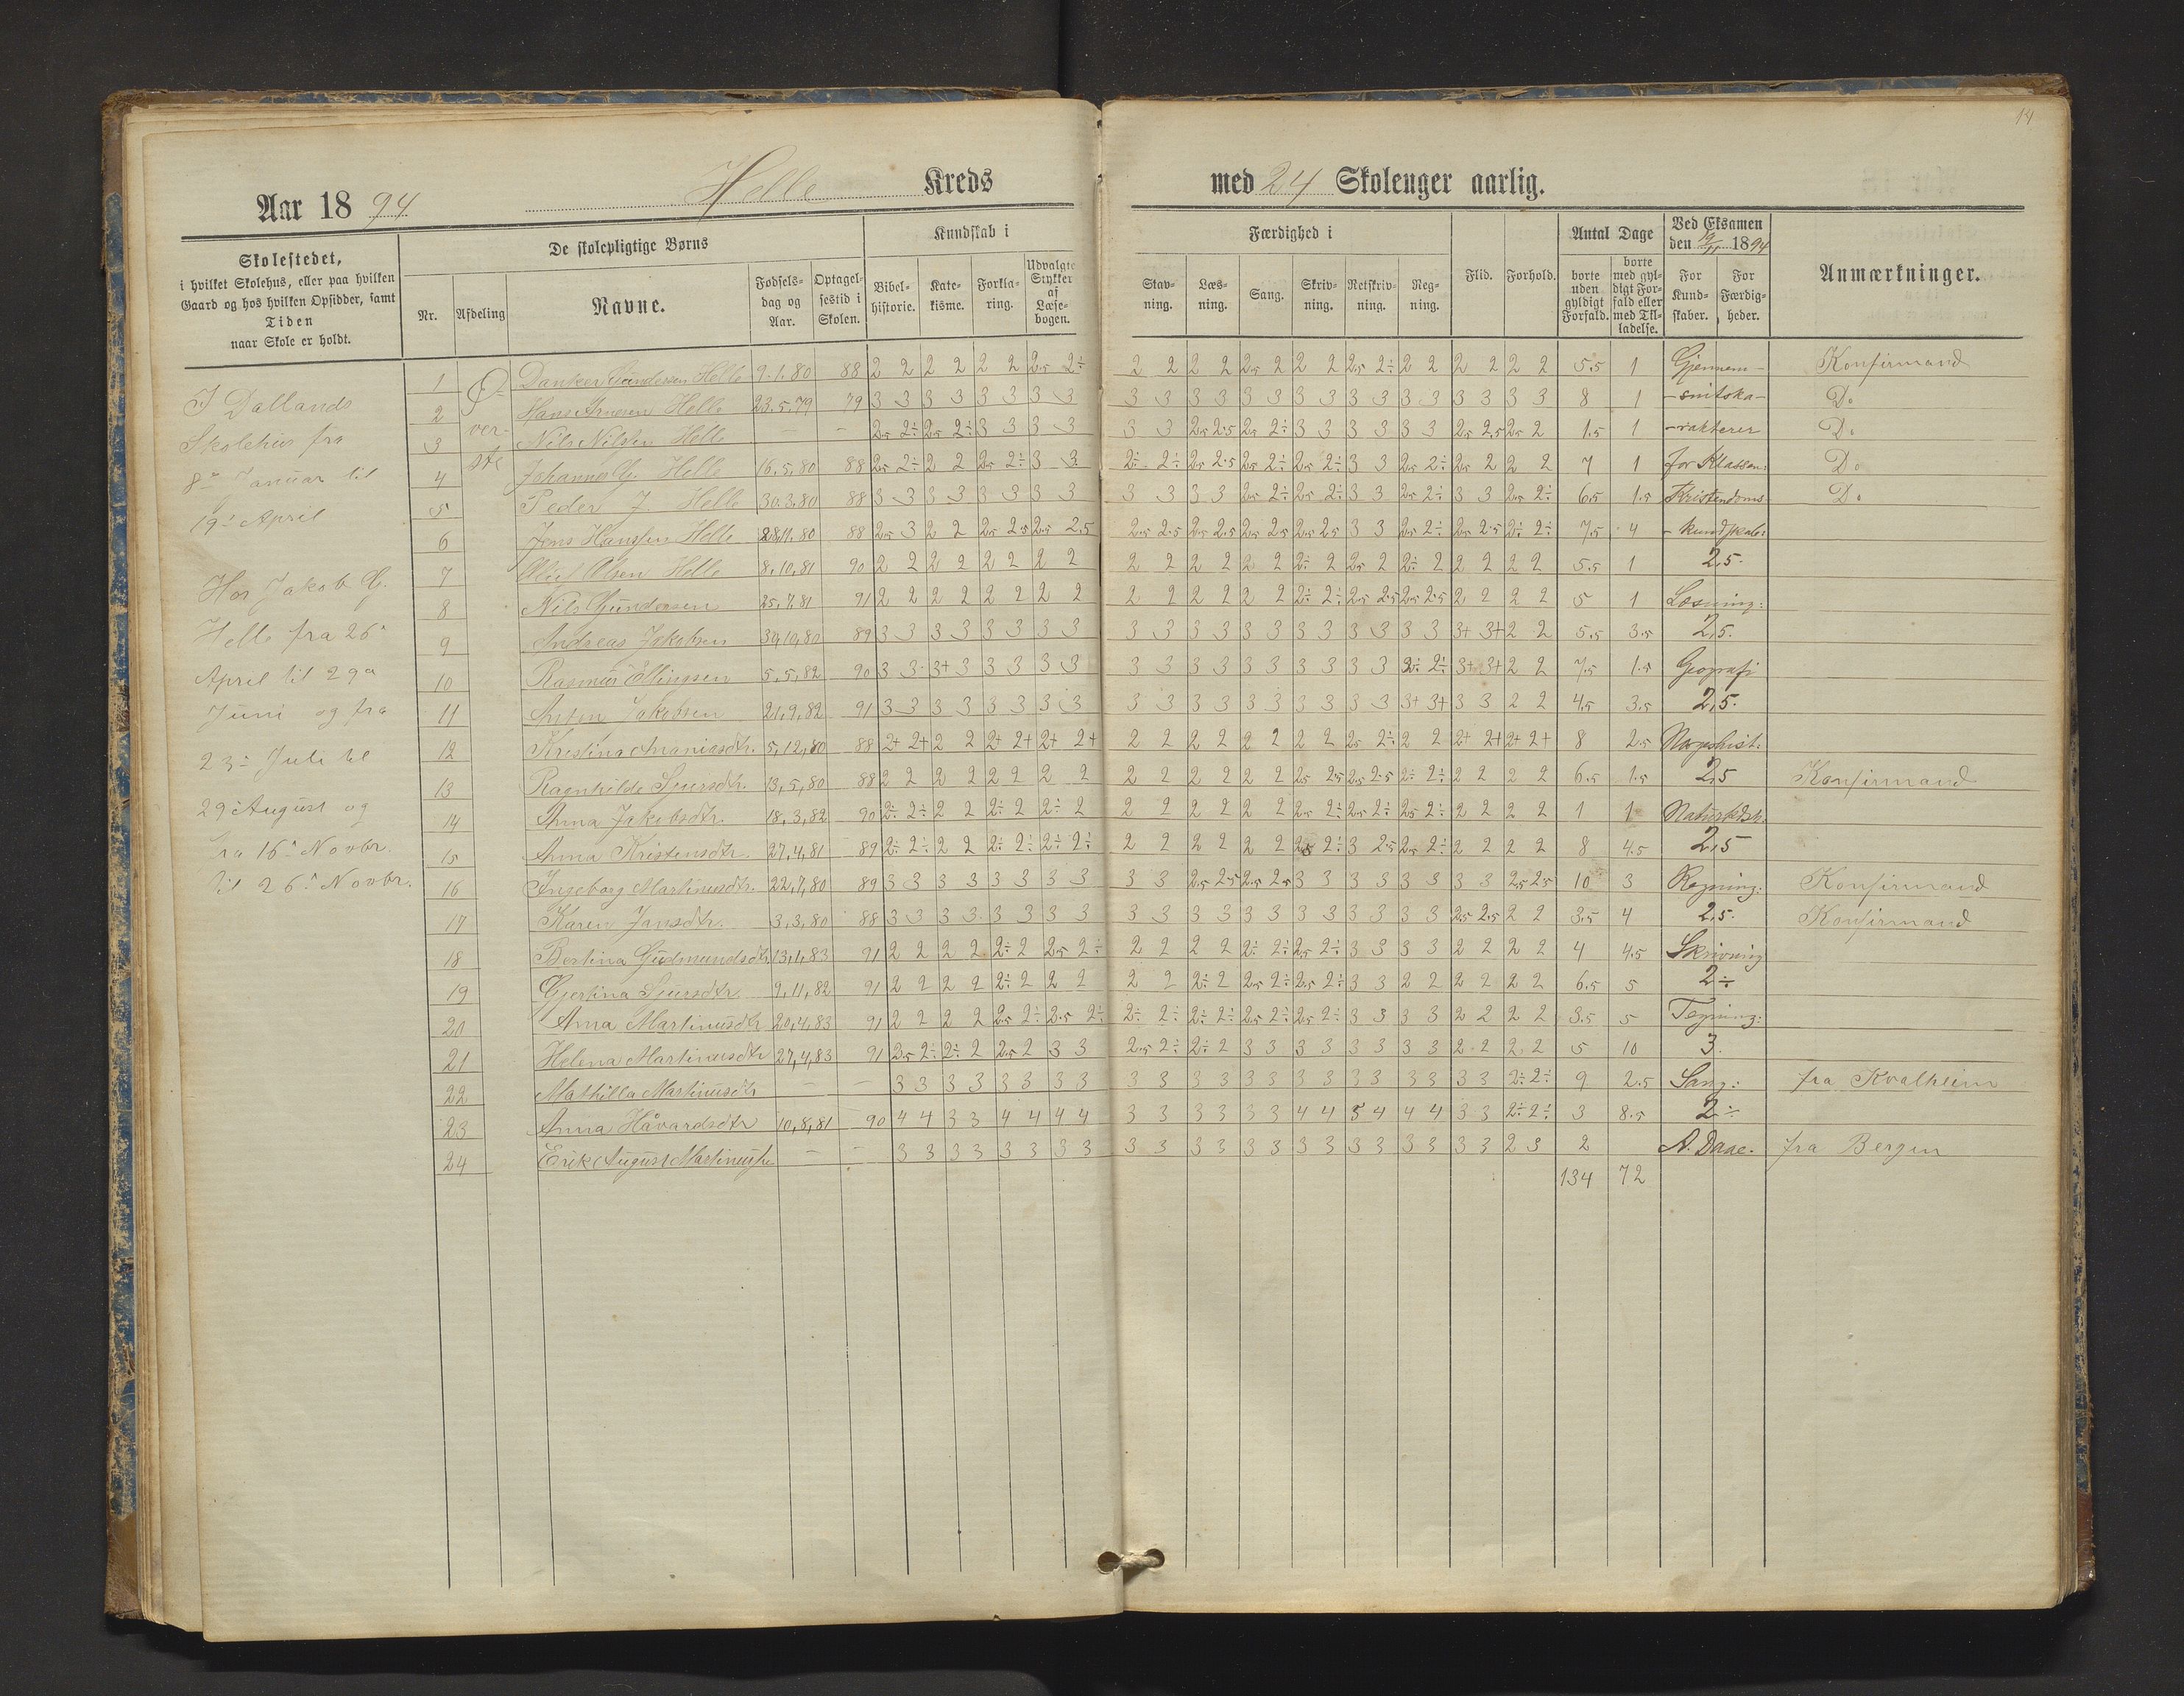 14
Aar 1894 Helle Kreds med 24 Skoleuger aarlig.
Skolestedet, i hvilket Skolehus, eller paa hvilken Gaard og hos hvilken Opsidder, samt Tiden naar Skole er holdt.
De skolepligtige Børns
Nr. Afdeling Navne. Fødselsdag og Aar. Optagelsestid i Skolen.
Kundskab i
Bibelhistorie. Katekisme. Forklaring. Udvalgte Stykker af Læsebogen.
Færdighed i
Stavning. Læsning. Sang. Skrivning. Retskrivning. Regning. Flid. Forhold.
Antal Dage
borte uden gyldigt Forfald. borte med gyldigt Forfald eller med Tilladelse.
Ved Eksamen den 1894
For Kundskaber. For Færdigheder.
Anmærkninger.
I Dallands
Skolehus fra
8de Januar til
19de April
Hos Jakob G.
Helle fra 26
April til 29a
Juni og fra
23 Juli til
29 August og
fra 16 Novbr.
til 26 Novbr.
Øverste
1 Danker Gundersen Helle 9.1.80 88 2 2 2 2 2 2 2.5 2÷ 2 2 2 2 2.5 2 2 2 2.5 2÷ 2 2 2 2 2 2 5.5 1 Gjennem- Konfirmand
2 Hans Arnesen Helle 23.5.79 79 3 3 3 3 3 3 3 3 3 3 3 3 3 3 3 3 3 3 3 3 3 3 3 3 8 1 -snitska- Do
3 Nils Nilsen Helle — — 2.5 2÷ 2.5 2÷ 3 3 3 3 3 3 2.5 2.5 2.5 2÷ 3 3 3 3 3 3 2.5 2.5 2.5 2 1.5 1 -rakterer Do
4 Johannes G. Helle 16.5.80 88 2.5 2÷ 2 2 2.5 2÷ 3 3 2÷ 2÷ 2.5 2.5 2.5 2÷ 2.5 2÷ 3 3 2.5 2÷ 2.5 2 2 2 7 1 for Klassen: Do
5 Peder J. Helle 30.3.80 88 3 3 3 3 3 3 3 3 3 3 3 3 2.5 2÷ 2.5 2÷ 3 3 2.5 2÷ 3 3 2.5 2÷ 6.5 1.5 Kristendoms- Do
6 Jens Hanssen Helle 28.11.80 88 2.5 3 2 2 2.5 2.5 2.5 2.5 2.5 2.5 2.5 2.5 2.5 2.5 2.5 2.5 3 3 2.5 2÷ 2.5 2.5 2÷ 2÷ 7.5 4 -kundskab:
7 Oluf Olsen Helle 8,10,81 90 2 2 2 2 2 2 2 2 2 2 2 2 2 2 2÷ 2 2.5 2 2÷ 2 2 2 2 2 5.5 1 2,5.
8 Nils Gundersen 25,7,81 91 2 2 2 2 2 2 2 2 2 2 2 2 2 2 2÷ 2÷ 2.5 2.5 2.5 2.5 2 2 2 2 5 1 Læsning:
9 Andreas Jakobsen 30,10,80 89 3 3 3 3 3 3 3 3 3 3 3 3 3 3 3 3 3 3 3 3 3+ 3+ 2 2 5.5 3.5 2,5.
10 Rasmus Ellingsen 5,5,82 90 3 3 3+ 3 3 3 3 3 3 3 3 3 3 3 3 3 3 3 2÷ 2÷ 3+ 3+ 2 2 7.5 1.5 Geografi
11 Anton Jakobsen 21,9,82 91 3 3 3 3 3 3 3 3 3 3 3 3 3 3 3 3 3 3 3+ 3+ 3 3 2 2 4.5 3.5 2,5.
12 Kristina Ananiasdtr. 5,12,80 88 2+ 2+ 2 2 2+ 2+ 2+ 2+ 2 2 2 2 2 2 2 2 2.5 2÷ 2 2 2+ 2+ 2+ 2+ 8 2.5 Norgeshist:
13 Ragnhilde Sjursdtr. 13,5,80 88 2 2 2 2 2 2 2 2 2 2 2 2 2 2 2.5 2.5 2.5 2.5 2÷ 2÷ 2 2 2 2 6.5 1.5 2,5 Konfirmand
14 Anna Jakobsdtr. 18,3,82 90 2÷ 2÷ 2 2 2÷ 2 2÷ 2 2 2 2 2 2 2 2.5 2÷ 2.5 2÷ 2.5 2÷ 2 2 2 2 1 1
15 Anna Kristensdtr. 27,4,81 89 2÷ 2÷ 2 2 2÷ 2÷ 2÷ 2÷ 2 2 2 2 2 2 2.5 2÷ 3 2.5 2.5 2÷ 2 2 2 2 8 4.5 2,5
16 Ingeborg Martinusdtr. 22,7,80 89 3 3 3 3 3 3 3 3 3 3 2.5 2.5 2.5 2.5 3 3 3 3 3 3 3 3 2.5 2.5 10 3 Regning: Konfirmand
17 Karen Jansdtr. 3,3,80 88 3 3 3 3 3 3 3 3 3 3 3 3 3 3 3 3 3 3 3 3 2.5 2.5 2 2 3.5 4 2,5. Konfirmand
18 Bertina Gudmundsdtr 13,1,83 91 2 2 2 2 2÷ 2 2.5 2÷ 2 2 2 2 2÷ 2÷ 2.5 2÷ 3 3 3 3 2 2 2 2 4 4.5 Skrivning
19 Gjertina Sjursdtr 9,11,82 91 2 2 2 2 2÷ 2 2 2 2 2 2÷ 2 2.5 2÷ 2.5 2÷ 3 3 2 2 2 2 2 2 6.5 5 2÷
20 Anna Martinusdtr 20,4,83 91 2 2 2 2 2.5 2÷ 2.5 2÷ 2÷ 2÷ 2÷ 2÷ 2.5 2÷ 2.5 2÷ 3 3 3 3 2 2 2 2 3.5 5 Tegning:
21 Helena Martinusdtr 27,4,83 91 2.5 2÷ 2÷ 2 2.5 2 3 3 2.5 2÷ 2÷ 2 3 3 3 3 3 3 3 3 2 2 2 2 5 10 3.
22 Mathilla Martinusdtr — — 3 3 3 3 3 3 3 3 3 3 3 3 3 3 3 3 3 3 3 3 3 3 2÷ 2÷ 9 2.5 Sang: fra Kvalheim
23 Anna Håvardsdtr 10,8,81 90 4 4 3 3 4 4 4 4 3 3 3 3 3 3 4 4 5 4 4 4 3 3 2÷ 2÷ 3 8.5 2÷
24 Erik August Martinussen — — 3 3 3 3 3 3 3 3 3 3 3 3 3 3 3 3 3 3 3 3 3 3 2 3 2 A. Daae. fra Bergen
134 72